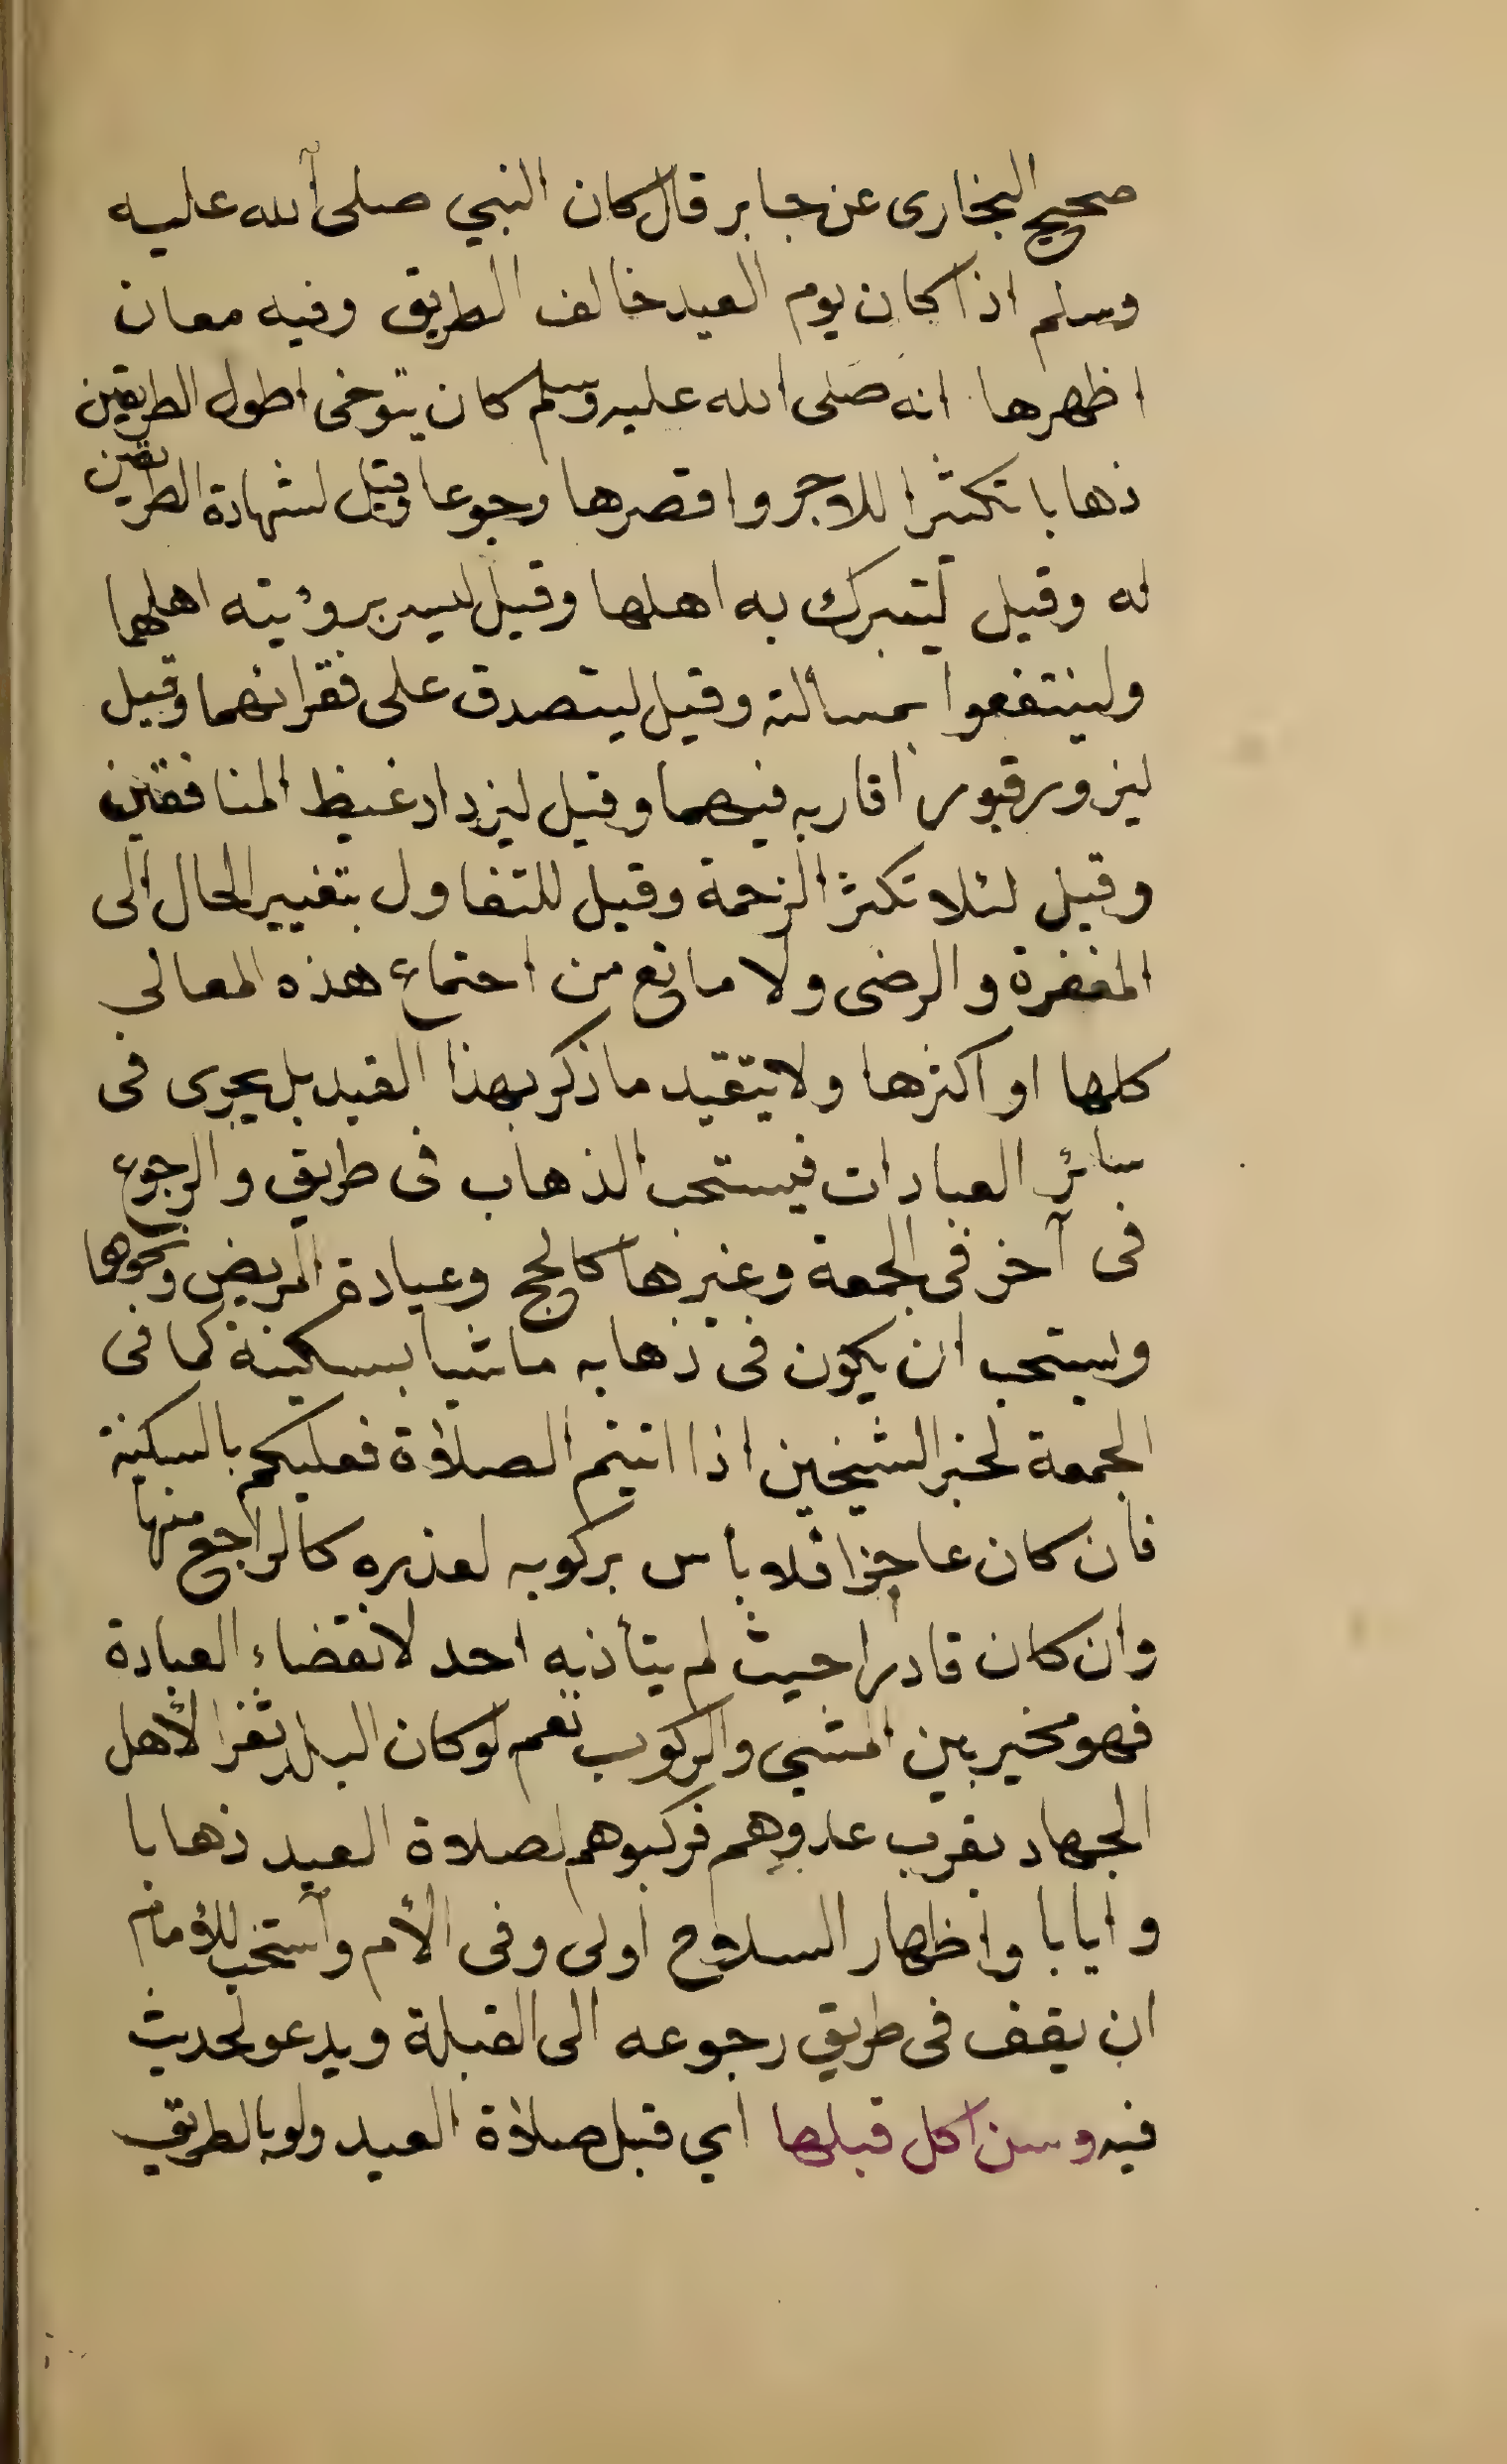 صحيح البخارى عن جابر قال كان النبي صلى الله عليه
وسلم اذا كان يوم العيد خالف الطريق وفيه معان
اظهرها انه صَلى الله عليه وسلم كان يتوخى اطول الطريقين
ذهابا تكثيرا للاجر واقصرها رجوعا وقيل لشهادة الطريقين
له وقيل ليتبرك به اهلها وقيل ليسر برؤيته اهلهما
ولينتفعوا بمسألته وقيل ليتصدق على فقرائهما وقيل
ليزور قبور اقاربه فيهما وقيل ليزداد غيظ المنافقين
وقيل لئلا تكثر الزحمة وقيل للتفاول بتغيير الحال الى
المغفرة والرضى ولا مانع من اجتماع هذه المعانى
كلها او اكثرها ولا يتقيد ما ذكر بهذا القيد بل يجرى فى
سائر العبادات فيستحب الذهاب فى طريق والرجوع
فى آخر فى الجمعة وغيرها كالحج وعيادة المريض ونحوها
ويستحب ان يكون فى ذهابه ماشيا بسكينة كما فى
الجمعة لخبر الشيخين اذا اتيتم الصلاة فعليكم بالسكينة
فان كان عاجزا فلا بأس بركوبه لعذره كالراجع منها
وان كان قادرا حيث لم يتأذ به احد لانقضاء العبادة
فهو مخير بين المشي والركوب نعم لو كان البلد ثغرا لأهل
الجهاد بقرب عدوهم فركبوهم لصلاة العيد ذهابا
وايابا واظهار السلاح اولى وفى الأم واستحب للامام
ان يقف فى طريق رجوعه الى القبلة ويدعو لحديث
فيه وسن اكل قبلها اي قبل صلاة العيد ولو بالطريق